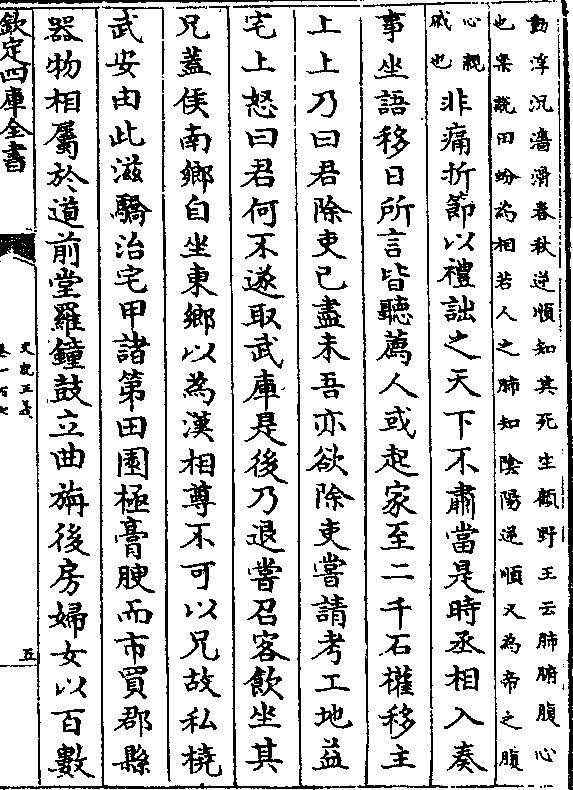 動浮沉濇滑春秋逆順知其死生顧野王云肺腑腹心
也案說田蚡為相若人之肺知陰陽逆順又為帝之腹
心親
戚也
非痛折節以禮詘之天下不肅當是時丞相入奏
事坐語移日所言皆聽薦人或起家至二千石權移主
上上乃曰君除吏已盡未吾亦欲除吏嘗請考工地益
宅上怒曰君何不遂取武庫是後乃退嘗召客飲坐其
兄蓋侯南鄉自坐東鄉以為漢相尊不可以兄故私橈
武安由此滋驕治宅甲諸第田園極膏腴而市買郡縣
器物相屬於道前堂羅鐘鼓立曲旃後房婦女以百數
欽定四庫全書
史記正義
卷一百七
五